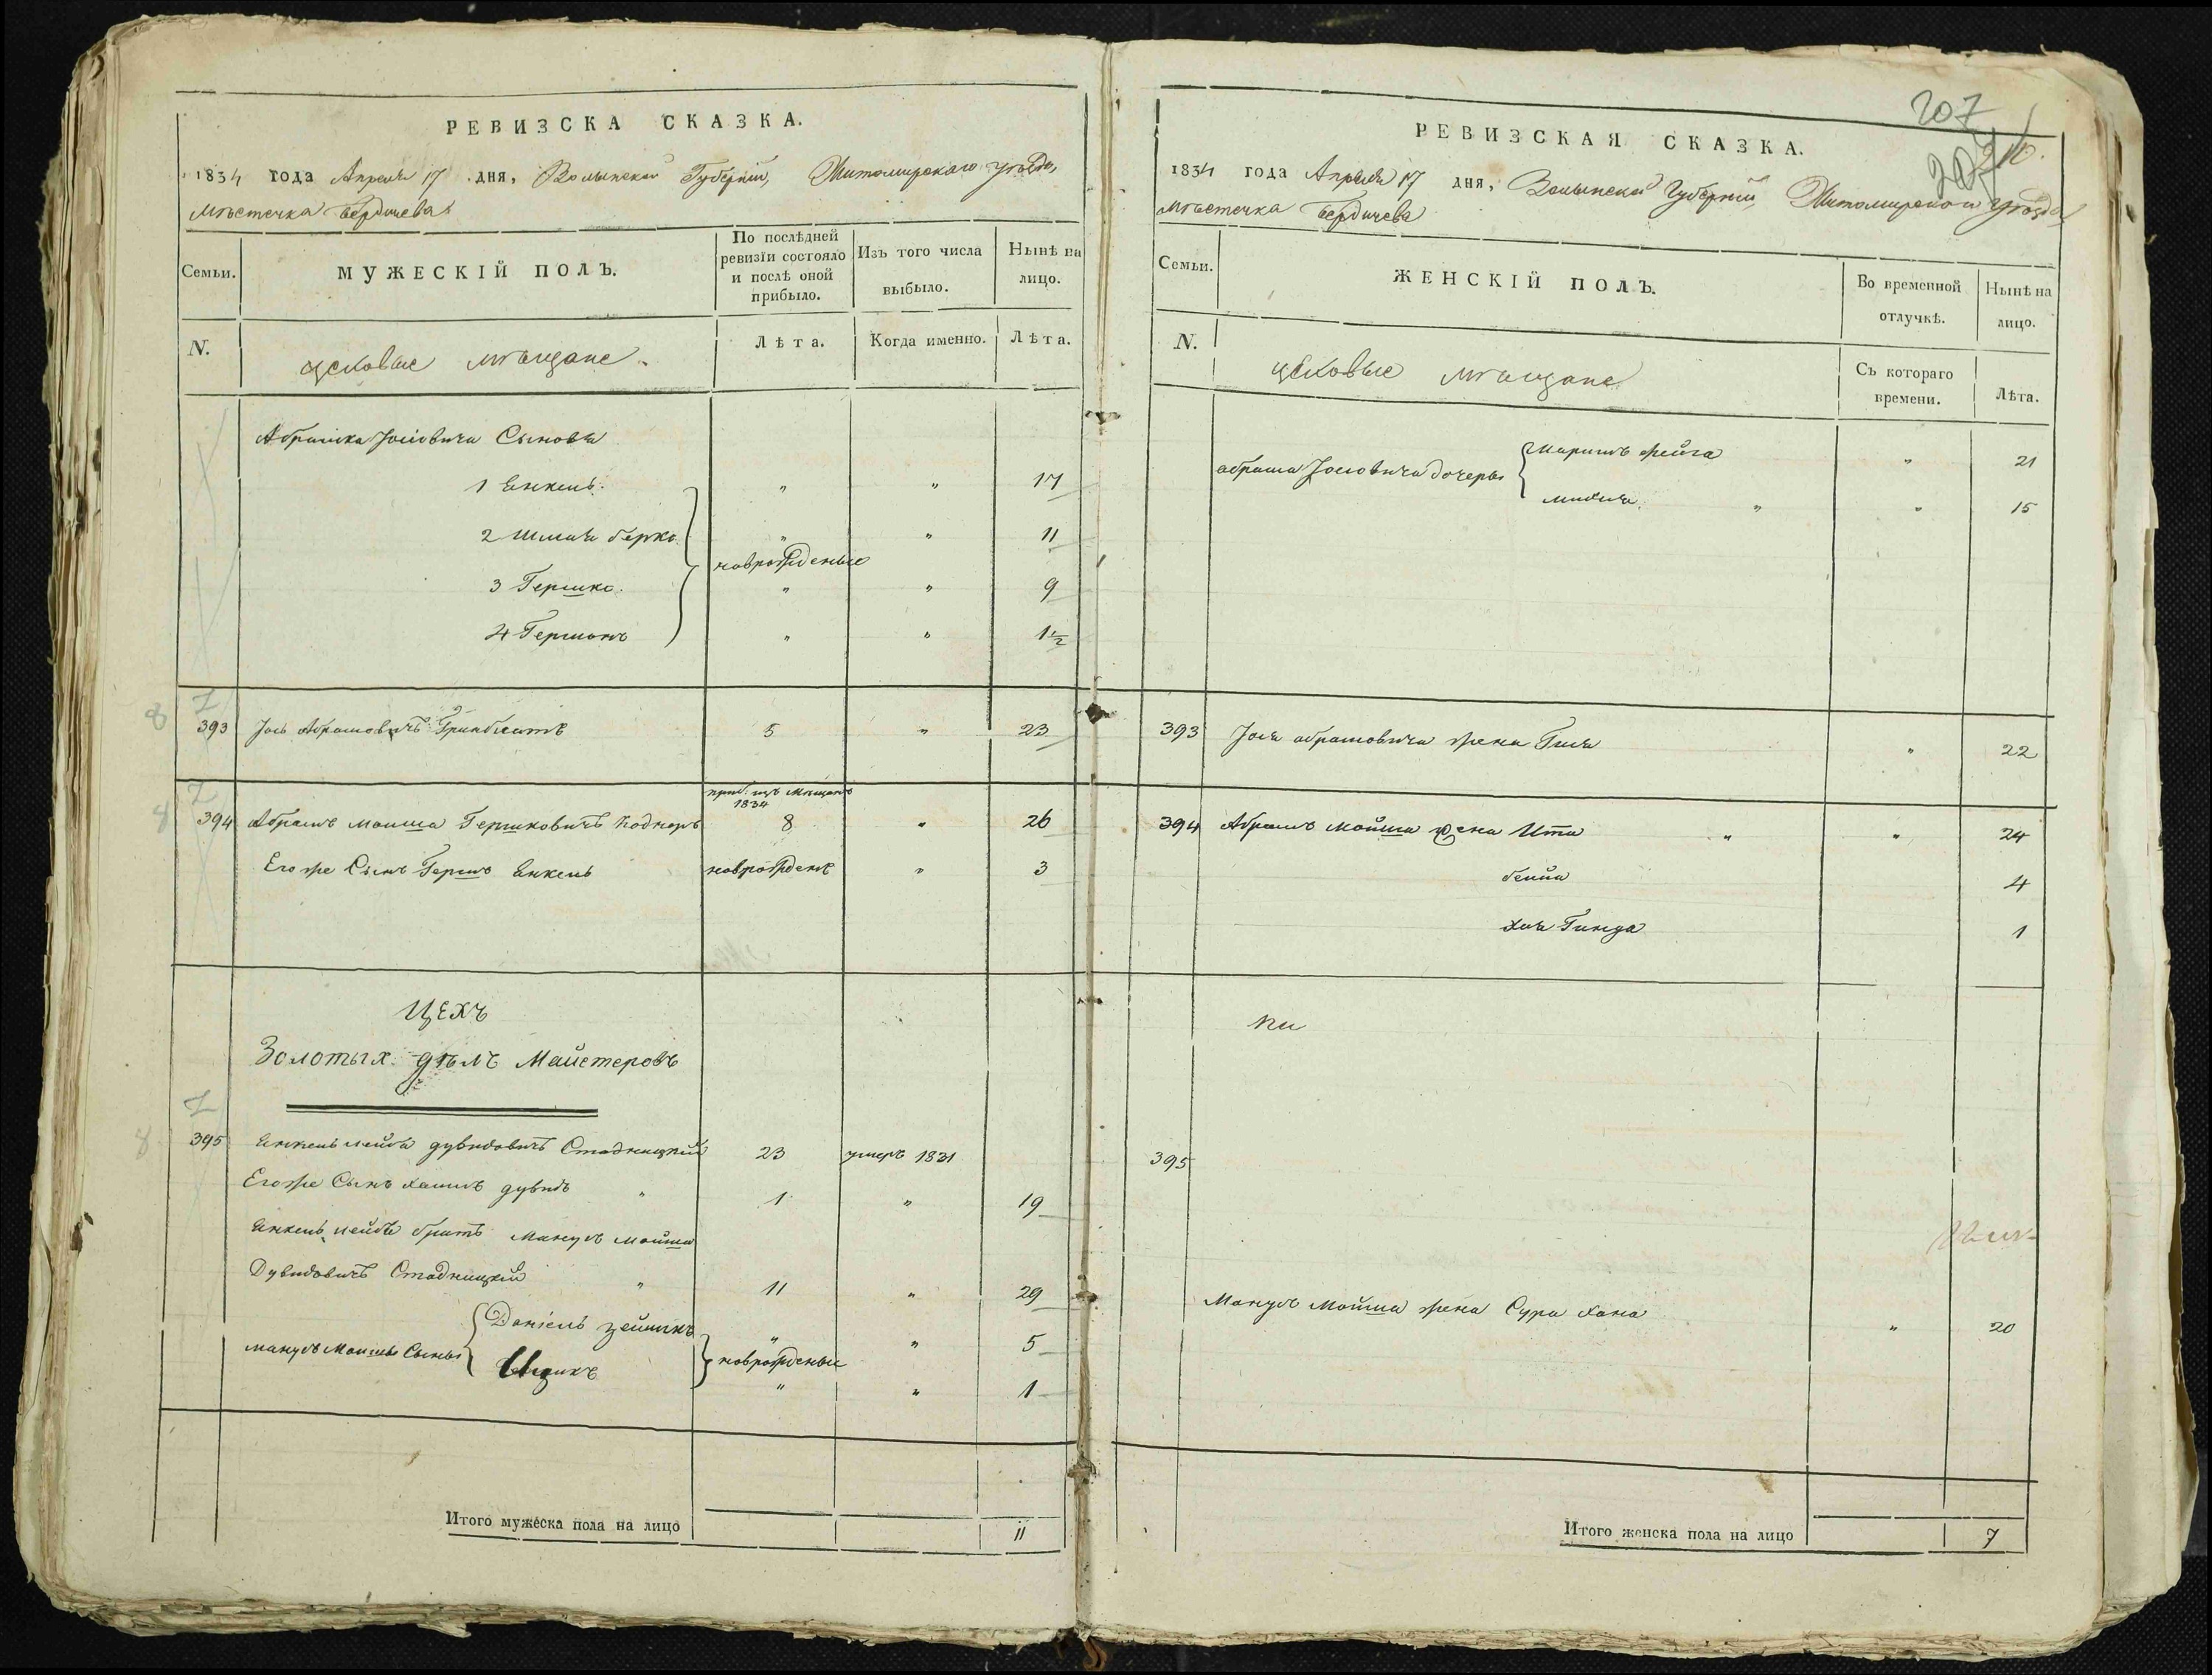 РЕВИЗСКА СКАЗКА.
1834 года Апреля 17 дня, Волынской Губернии, Житомирскаго уѣзда,
Мѣстечка Бердичева
Семьи.
МУЖЕСКІЙ ПОЛЪ.
По послѣдней
ревизіи состояло
и послѣ оной
прибыло.
Изъ того числа
выбыло.
Нынѣ на
лицо.
N.
цеховые мѣщане
Лѣта.
Когда именно.
Лѣта.
Абрамка Іосіовича Сыновья
1 Янкель " " 17
2 Шмиля Берко " " 11
новрожденые
3 Гершко " " 9
4 Гершонъ " " 1½
393 Іось Абрамовичъ Гринблатъ 5 " 23
приб: изъ Мѣщанъ
1834
394 Абрамъ Моиша Гершковичъ 8 " 26
Его же Сынъ Гершъ Янкель новрожденъ " 3
ЦЕХЪ
Золотыхъ дѣлъ Майстеровъ
395 Янкель Лейба Дувидовичъ Стадницкій 23 умеръ 1831
Его же Сынъ Хаимъ Дувидъ " 1 " 19
Янкель Лейбы братъ Манусъ Моиша
Дувидовичъ Стадницкій " 11 " 29
Данiель Зейликъ " " 5
Манусъ Моиша Сыны новрожденые
Ицикъ " " 1
Итого мужеска пола на лицо 11
207
РЕВИЗСКАЯ СКАЗКА.
1834 года Апреля 17 дня, Волынской Губерніи, Житомирскаго уѣзда
Мѣстечка Бердичева
Семьи.
ЖЕНСКІЙ ПОЛЪ.
Во временной
отлучкѣ.
Нынѣ на
лицо.
N.
цеховые мѣщане
Съ котораго
времени.
Лѣта.
Абрама Іосіовича дочеры
Маріимъ Фейга " 21
" " 15
393 Іося Абрамовича жена Гися " 22
394 Абрамъ Мойша жена Ита " " 24
Бейла 4
Хая Гинда 1
395
Манусъ Мойша жена Сура Хана " 20
Итого женска пола на лицо 7